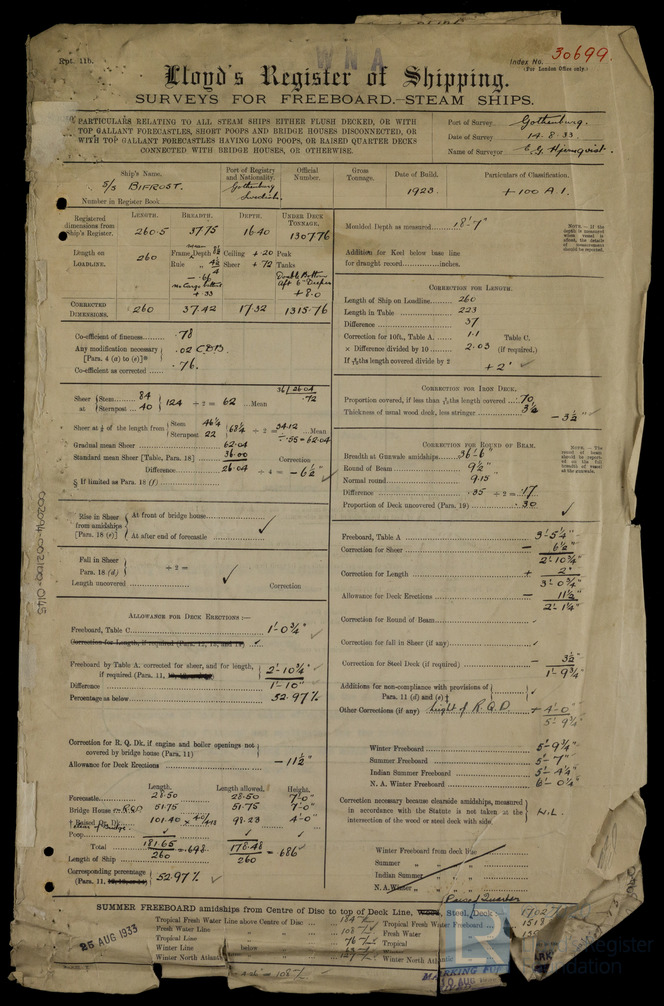 Rpt. 11b.
W N A
Index No. 30699.
(For London Office only.)
Lloyd's Register of Shipping.
SURVEYS FOR FREEBOARD.—STEAM SHIPS.
PARTICULARS RELATING TO ALL STEAM SHIPS EITHER FLUSH DECKED, OR WITH
TOP GALLANT FORECASTLES, SHORT POOPS AND BRIDGE HOUSES DISCONNECTED, OR
WITH TOP GALLANT FORECASTLES HAVING LONG POOPS, OR RAISED QUARTER DECKS
CONNECTED WITH BRIDGE HOUSES, OR OTHERWISE.
Port of Survey Gothenburg.
Date of Survey 14.8.33
Name of Surveyor
Ship's Name. Port of Registry and Nationality. Official Number. Gross Tonnage. Date of Build. Particulars of Classification.
S/S BIFROST. Gothenburg Swedish. 1923. +100 A.1.
Number in Register Book
Registered dimensions from Ship's Register. LENGTH. BREADTH. DEPTH. UNDER DECK TONNAGE.
260.5 37.75 16.40 1307.76
Length on LOADLINE. 260 Frame Depth 8½ Ceiling +.20 Peak
Rule 4½ Sheer +.72 Tanks
Double Bottom
aft 6" Deeper
no Cargo battens
+.33
+8.0
CORRECTED DIMENSIONS. 260 37.42 17.32 1315.76
Co-efficient of fineness .78
Any modification necessary [Para. 4 (a) to (e)]* .02 CDB
Co-efficient as corrected .76.
Sheer at Stem 84 Sternpost 40 124 ÷ 2 = 62 Mean
36/26.04 .72
Sheer at ⅛ of the length from Stem 46¼ Sternpost 22 68¼ ÷ 2 = 34.12 Mean
÷ .55 = 62.04
Gradual mean Sheer 62.04
Standard mean Sheer [Table, Para. 18] 36.00 Correction
Difference 26.04 ÷ 4 = – 6½"
§ If limited as Para. 18 (f)
Rise in Sheer from amidships [Para. 18 (e)] At front of bridge house
At after end of forecastle
Fall in Sheer Para. 18 (d) ÷ 2 =
Length uncovered Correction
ALLOWANCE FOR DECK ERECTIONS:—
Freeboard, Table C 1'-0¾"
Correction for Length, if required (Paras. 12, 13, and 14)
Freeboard by Table A. corrected for sheer, and for length, if required (Para. 11, 12, 13, or 14) 2'-10¾"
Difference 1'-10"
Percentage as below 52.97%
Correction for R. Q. Dk. if engine and boiler openings not covered by bridge house (Para. 11)
Allowance for Deck Erections – 11½"
Length. Length allowed. Height.
Forecastle 28.50 28.50 7'-0"
Bridge House on R.Q.D. 51.75 51.75 7'-0"
† Raised Qr. Dk. 101.40 98.23 4'-0"
Poop
Total 181.65 / 260 = .698 178.48 / 260 = .686
Length of Ship
Corresponding percentage (Para. 11, 12, 13, or 14) 52.97%
Moulded Depth as measured 18'-7"
NOTE.—If the depth is measured when vessel is afloat, the details of measurements should be reported.
Addition for Keel below base line for draught record inches.
CORRECTION FOR LENGTH.
Length of Ship on Loadline 260
Length in Table 223
Difference 37
Correction for 10ft., Table A. 1.1 Table C.
× Difference divided by 10 2.03 (if required.)
If ⁶⁄₁₀ths length covered divide by 2 +2"
CORRECTION FOR IRON DECK.
Proportion covered, if less than ⁷⁄₁₀ths length covered .70
Thickness of usual wood deck, less stringer 3½ – 3½"
CORRECTION FOR ROUND OF BEAM.
Breadth at Gunwale amidships 36'-6"
Round of Beam 9½"
Normal round 9.15
Difference .35 ÷ 2 = .17
Proportion of Deck uncovered (Para. 19) .30
NOTE.—The round of beam should be reported on the full breadth of vessel at the gunwale.
Freeboard, Table A 3'-5¼"
Correction for Sheer – 6½"
2'-10¾"
Correction for Length + 2"
3'-0¾"
Allowance for Deck Erections – 11½"
2'-1¼"
Correction for Round of Beam
Correction for fall in Sheer (if any)
Correction for Steel Deck (if required) – 3½"
1'-9¾"
Additions for non-compliance with provisions of Para. 11 (d) and (e) †
Other Corrections (if any) height of R.Q.D. + 4'-0"
5'-9¾"
Winter Freeboard 5'-9¾"
Summer Freeboard 5'-7"
Indian Summer Freeboard 5'-4¼"
N. A. Winter Freeboard 6'-0¼"
Correction necessary because clearside amidships, measured in accordance with the Statute is not taken at the intersection of the wood or steel deck with side Nil.
Winter Freeboard from deck line
Summer " "
Indian Summer " "
N.A. Winter " "
Raised Quarter
SUMMER FREEBOARD amidships from Centre of Disc to top of Deck Line, Wood, Steel, Deck:— 1702
Tropical Fresh Water Line above Centre of Disc
Fresh Water Line
Tropical Line
Winter Line below
Winter North Atlantic
Tropical Fresh Water Freeboard 1518
Fresh Water
Tropical
25 AUG 1933
MARKING
AUG
002094-002100-0143
LR
Register
Foundation